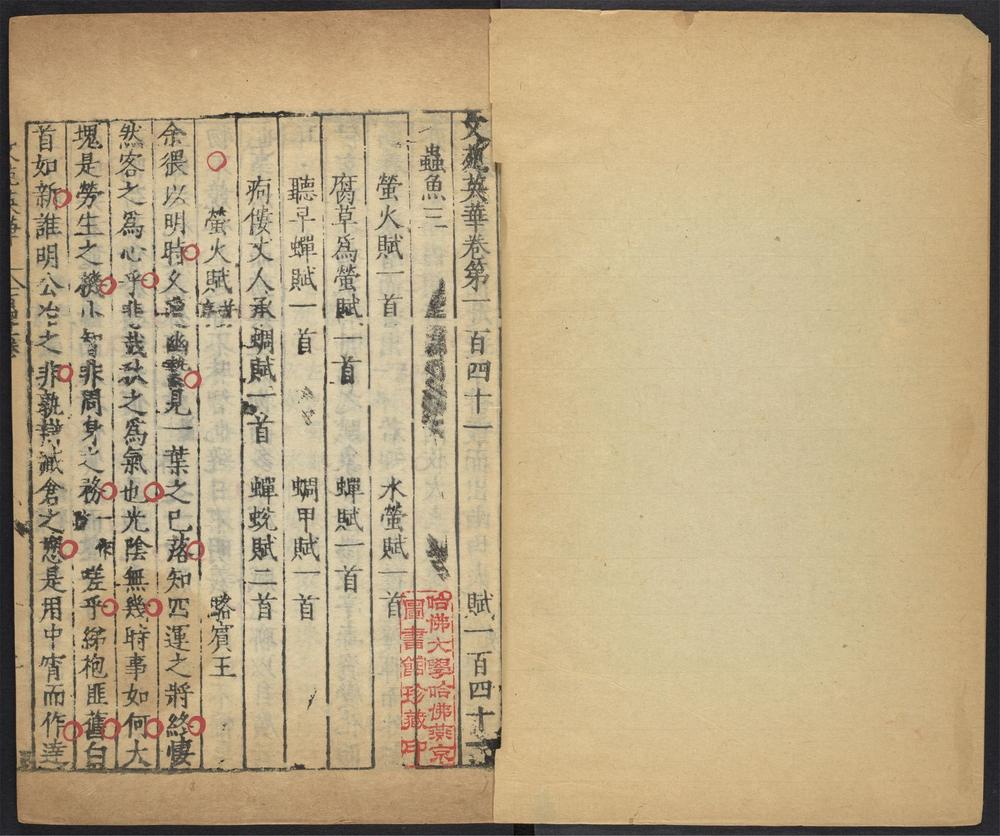 文苑英華卷第一百四十一 賦一百四十一
蟲魚三
螢火賦一首 水螢賦一首
腐草爲螢賦一首 蟬賦一首
聽早蟬賦一首 蜩甲賦一首
痀僂丈人承蜩賦一首 蟬蛻賦二首
螢火賦 駱賓王
余猥以明時久遭幽縶見一葉之已落知四運之將終悽
然客之爲心乎悲哉秋之爲氣也光陰無幾時事如何大
塊是勞生之機小智非周身之務一作嗟乎綈袍匪舊白
首如新誰明公冶之非孰辯臧倉之愬是用中宵而作達
哈佛大學哈佛燕京
圖書館珍藏印